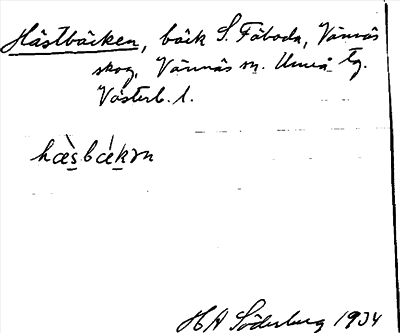 Hästbäcken, bäck S. Fäboda, Vännäs
skog, Vännäs sn. Umeå tg.
Västerb. l.
hæ̀sbǽkm
HA Söderberg 1934